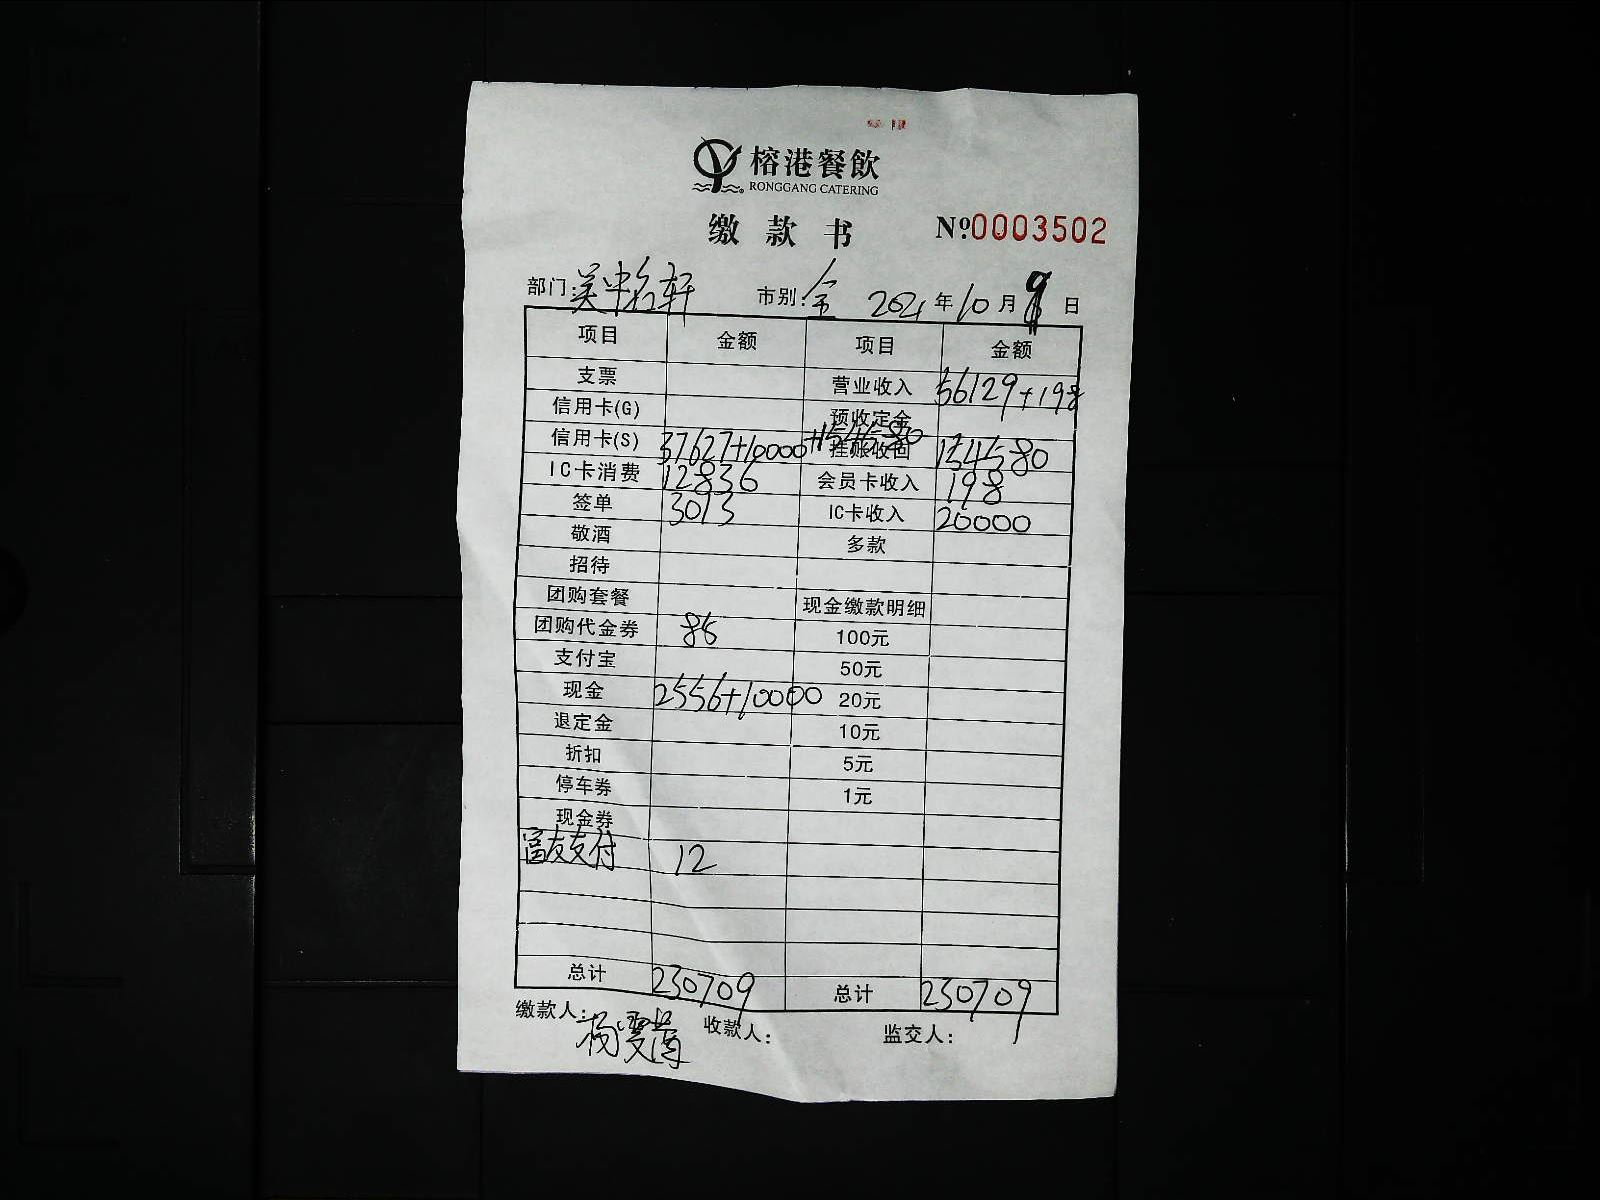 榕港餐飲
RONGGANG CATERING
缴款书 Nº0003502
部门: 吴中轩 市别: 全 2021年10月9日
项目 金额 项目 金额
支票 营业收入 56129+198
信用卡(G) 预收定金
信用卡(S) 37627+10000+154580 挂账收回 154580
IC卡消费 12836 会员卡收入 198
签单 3013 IC卡收入 20000
敬酒 多款
招待
团购套餐 现金缴款明细
团购代金券 85 100元
支付宝 50元
现金 2556+10000 20元
退定金 10元
折扣 5元
停车券 1元
现金券
富友支付 12
总计 230709 总计 230709
缴款人: 杨雯 收款人: 监交人: